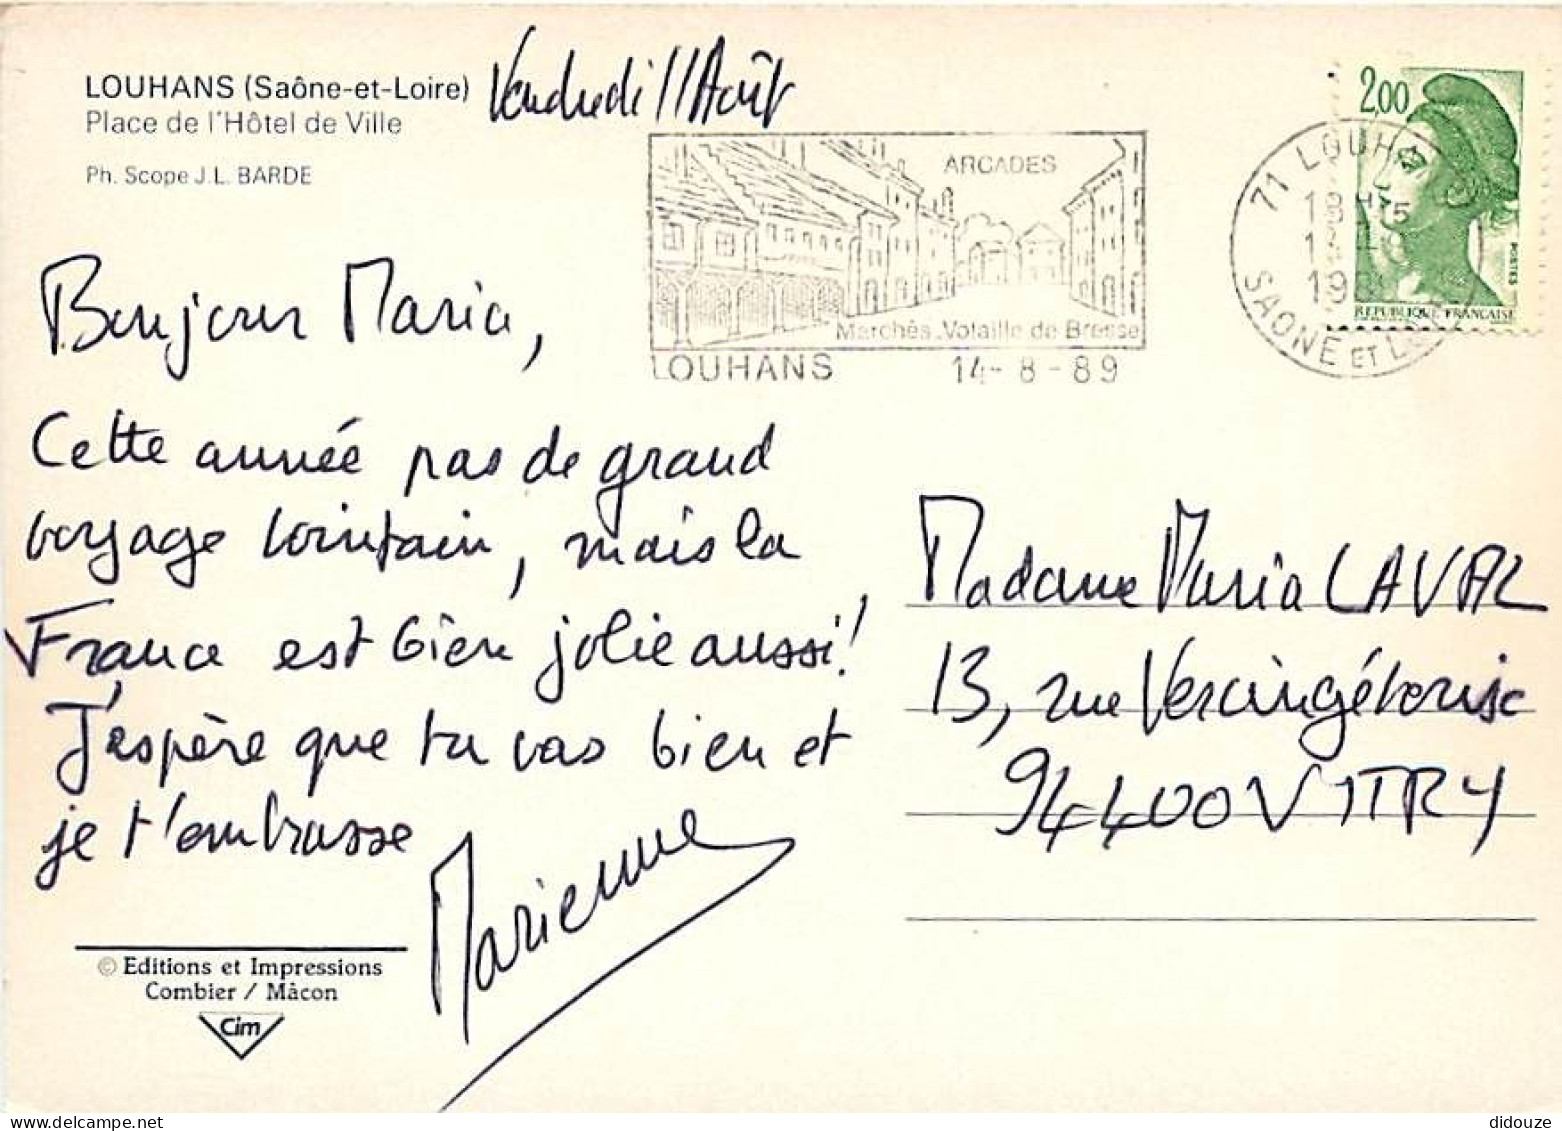 LOUHANS (Saône-et-Loire)
Place de l'Hôtel de Ville
Ph. Scope J.L. BARDE
Vendredi 11 Août
ARCADES
Marchés.Volaille de Bresse
LOUHANS 14-8-89
71 LOUHA
SAONE ET L
2,00
POSTES
REPUBLIQUE FRANCAISE
Bonjour Maria,
Cette année pas de grand
voyage lointain, mais la
France est bien jolie aussi!
J'espère que tu vas bien et
je t'embrasse
Marienne
Madame Maria LAVAL
13, rue Vercingétorix
94400 VITRY
© Editions et Impressions
Combier / Mâcon
Cim
didouze